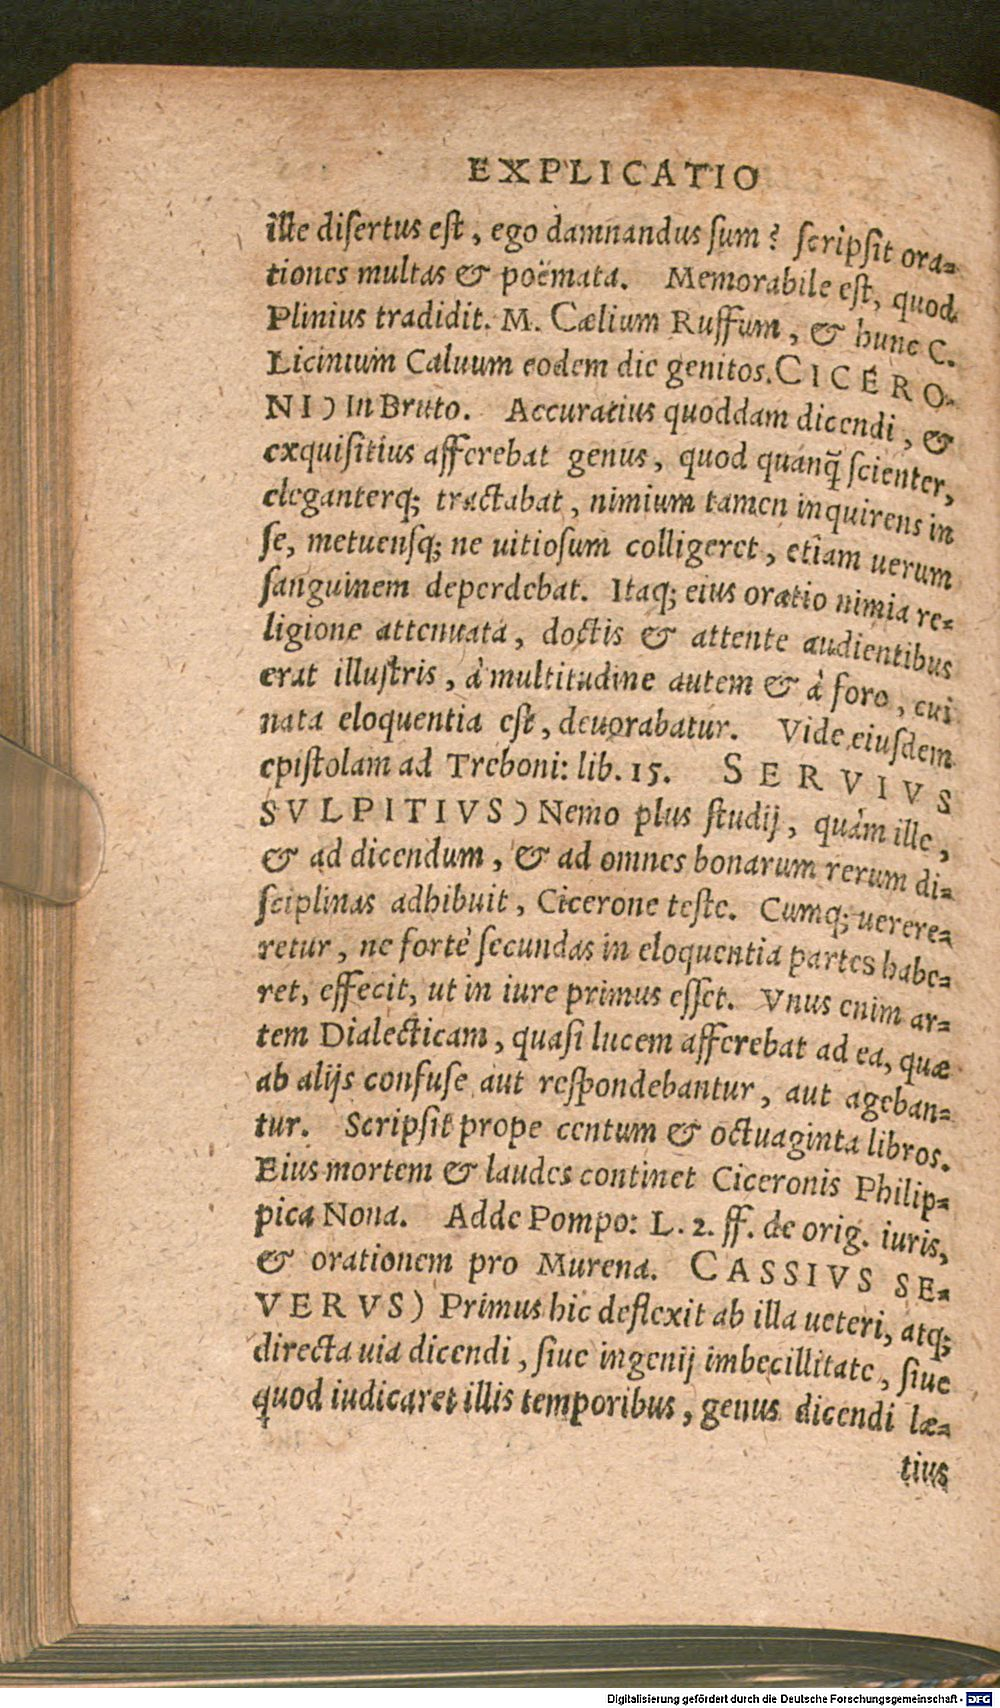 EXPLICATIO
ille disertus est, ego damnandus sum? scripsit ora-
tiones multas & poëmata. Memorabile est, quod
Plinius tradidit. M. Cælium Ruffum, & hunc C.
Licinium Caluum eodem die genitos. CICERO-
NI) In Bruto. Accuratius quoddam dicendi, &
exquisitius afferebat genus, quod quanq̃ scienter,
eleganterq; tractabat, nimium tamen inquirens in
se, metuensq; ne uitiosum colligeret, etiam uerum
sanguinem deperdebat. Itaq; eius oratio nimia re-
ligione attenuata, doctis & attente audientibus
erat illustris, à multitudine autem & à foro, cui
nata eloquentia est, deuorabatur. Vide eiusdem
epistolam ad Treboni: lib. 15. SERVIVS
SVLPITIVS) Nemo plus studij, quàm ille,
& ad dicendum, & ad omnes bonarum rerum di-
sciplinas adhibuit, Cicerone teste. Cumq; uerere-
retur, ne fortè secundas in eloquentia partes habe-
ret, effecit, ut in iure primus esset. Vnus enim ar-
tem Dialecticam, quasi lucem afferebat ad ea, quæ
ab alijs confuse aut respondebantur, aut ageban-
tur. Scripsit prope centum & octuaginta libros.
Eius mortem & laudes continet Ciceronis Philip-
pica Nona. Adde Pompo: L. 2. ff. de orig. iuris,
& orationem pro Murena. CASSIVS SE-
VERVS) Primus hic deflexit ab illa ueteri, atq;
directa uia dicendi, siue ingenij imbecillitate, siue
quod iudicaret illis temporibus, genus dicendi læ-
tius
Digitalisierung gefördert durch die Deutsche Forschungsgemeinschaft - DFG